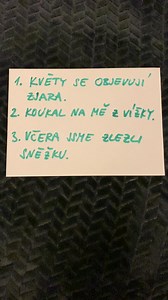 1. KVĚTY SE OBJEVUJÍ
ZJARA.
2. KOUKAL NA MĚ Z VÍŠKY.
3. VČERA JSME ZLEZLI
SNĚŽKU.